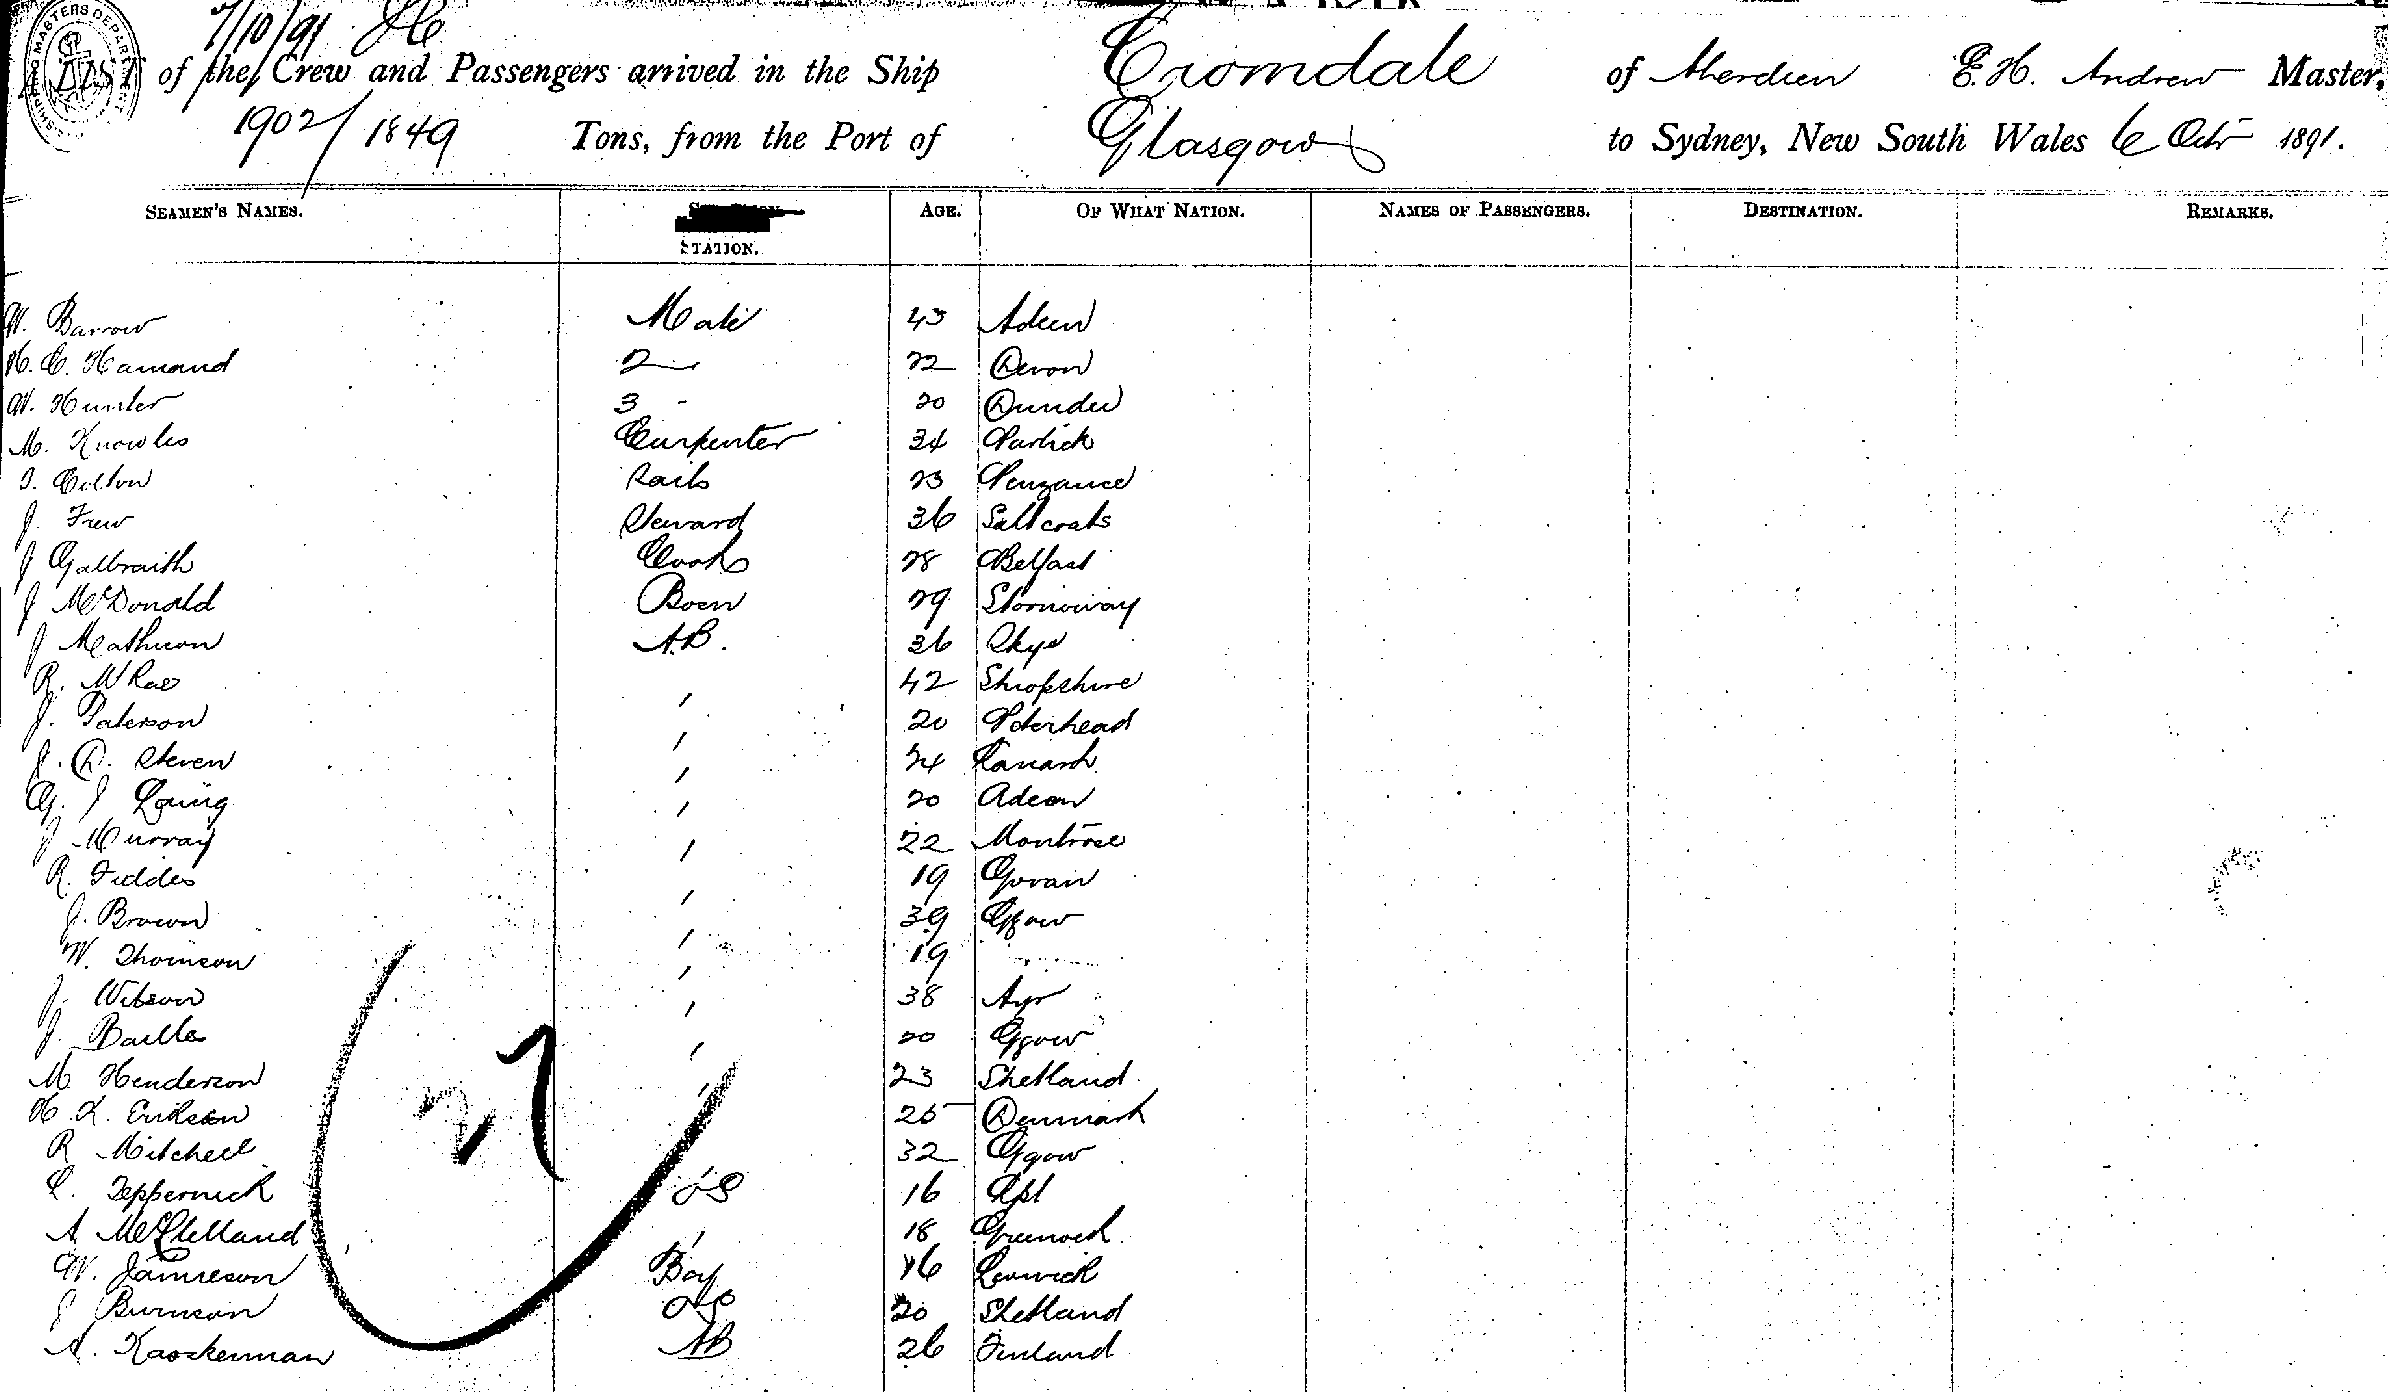 7/10/91
LIST of the Crew and Passengers arrived in the Ship Cromdale of Aberdeen E. H. Andrew Master,
1902/1849 Tons, from the Port of Glasgow to Sydney, New South Wales 6 Octr 1891.
SEAMEN'S NAMES. STATION. AGE. OF WHAT NATION. NAMES OF PASSENGERS. DESTINATION. REMARKS.
W. Barrow Mate 43 Adeen
H. C. Hamand 2 22 Devon
W. Hunter 3 - 20 Dundee
M. Knowles Carpenter 34 Partick
J. Colton Sails 23 Penzance
J. Frew Steward 36 Saltcoats
J Galbraith Cook 28 Belfast
J McDonald Bosn 29 Stornoway
J Mathieson A.B. 36 Skye
R. McRae 42 Shropshire
J. Paterson 20 Peterhead
J. D. Steven 24 Lanark
G. J Laing 20 Adeen
J Murray 22 Montrose
R. Fiddes 19 Govan
J. Brown 39 Ggow
W. Thomson 19
J. Wilson 38 Ayr
J. Baillie 20 Ggow
M Henderson 23 Shetland
H. L. Eriksen 25 Denmark
R Mitchell 32 Ggow
C. Teppernick OS 16 Lpl
A McClelland 18 Greenock
W. Jamieson Boy 16 Lerwick
J Burnson OS 20 Shetland
A. Kaoskenman AB 26 Finland
27